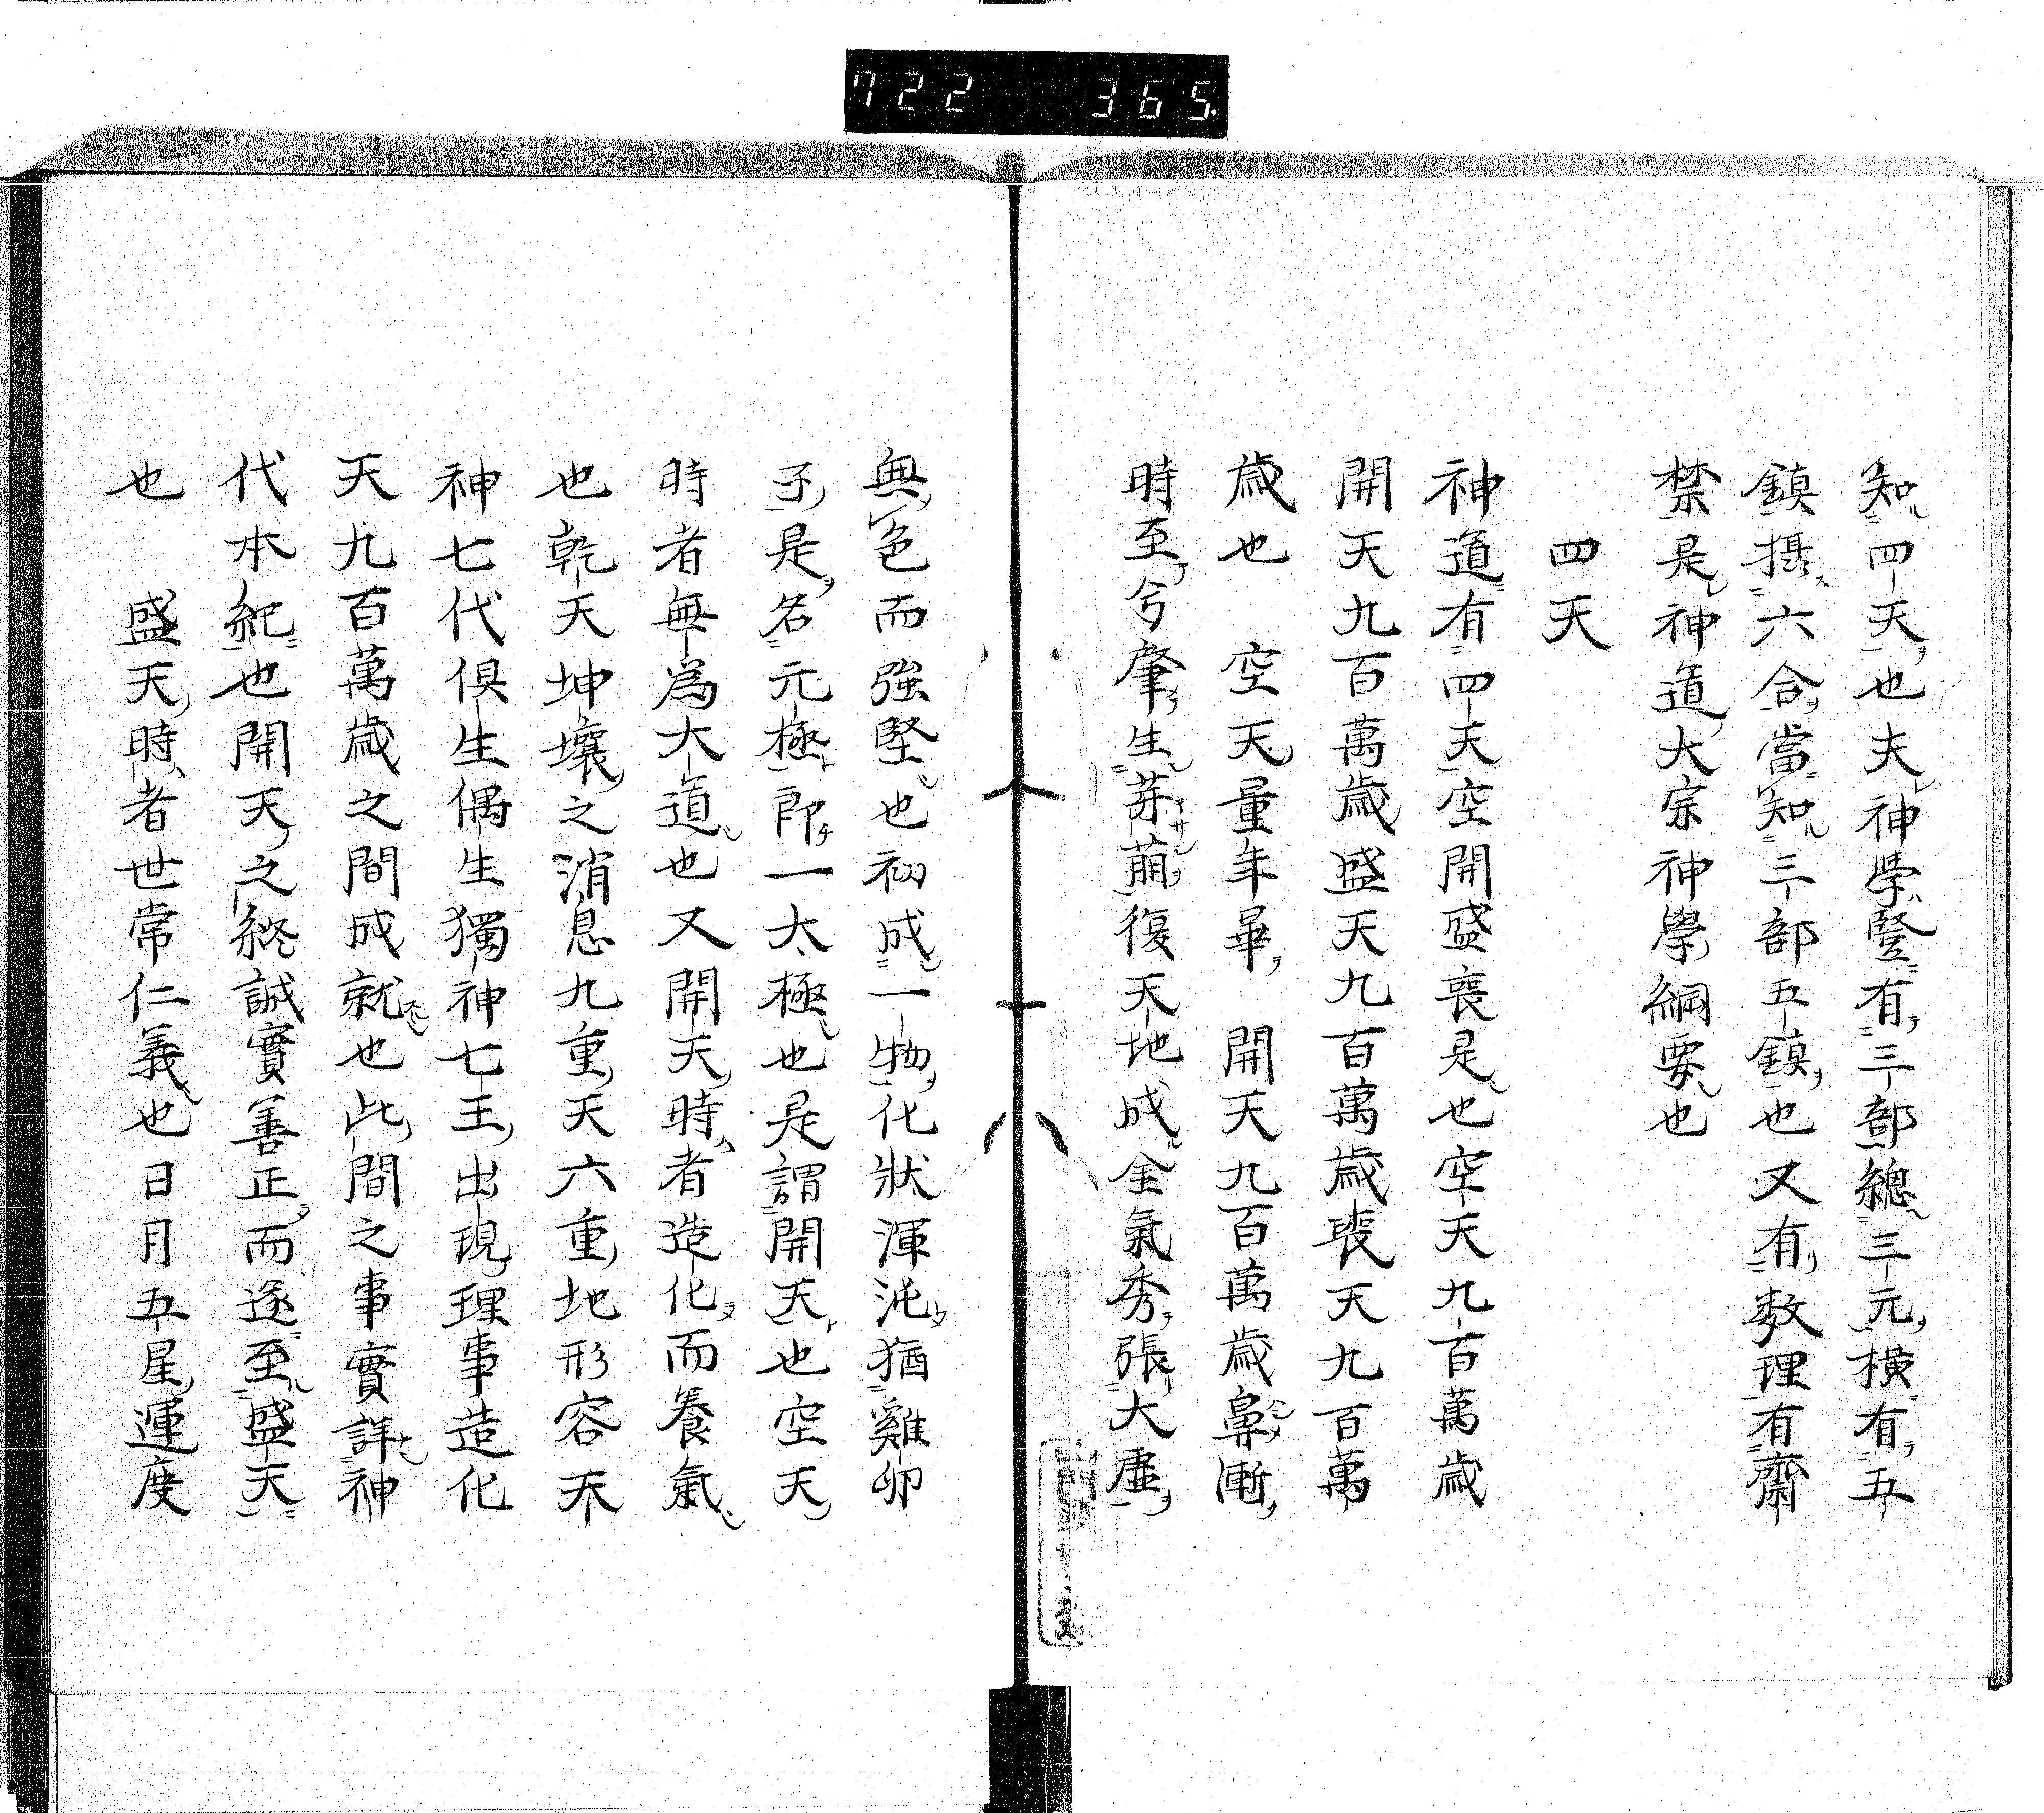 722 365
知四天也夫神學豎有三部總三元橫有五
鎮摂六合當知三部五鎮也又有数理有齋
禁是神道大宗神學綱要也
四天
神道有四天空開盛喪是也空天九百萬歲
開天九百萬歲盛天九百萬歲喪天九百萬
歲也　空天量年畢　開天九百萬歲 漸
時至兮肇生芽萠復天地成金氣秀張大虛
無色而強堅也初成一物化狀渾沌猶雞卵
子是名元極即一太極也是謂開天也空天
時者無為大道也又開天時者造化而養氣
也乾天坤壤之消息九重天六重地形容天
神七代俱生偶生獨神七王出現理事造化
天九百萬歲之間成就也此間之事實詳神
代本紀也開天之終誠實善正而逐至盛天
也　盛天時者世常仁義也日月五星運度